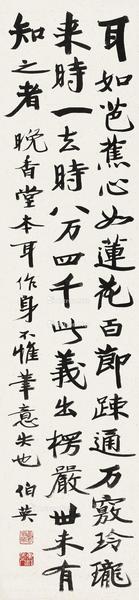 耳如芭蕉心如蓮花百節疎通万竅玲瓏
来時一去時八万四千此義出楞嚴世未有
知之者 晚香堂本耳作身不惟筆意失也 伯英